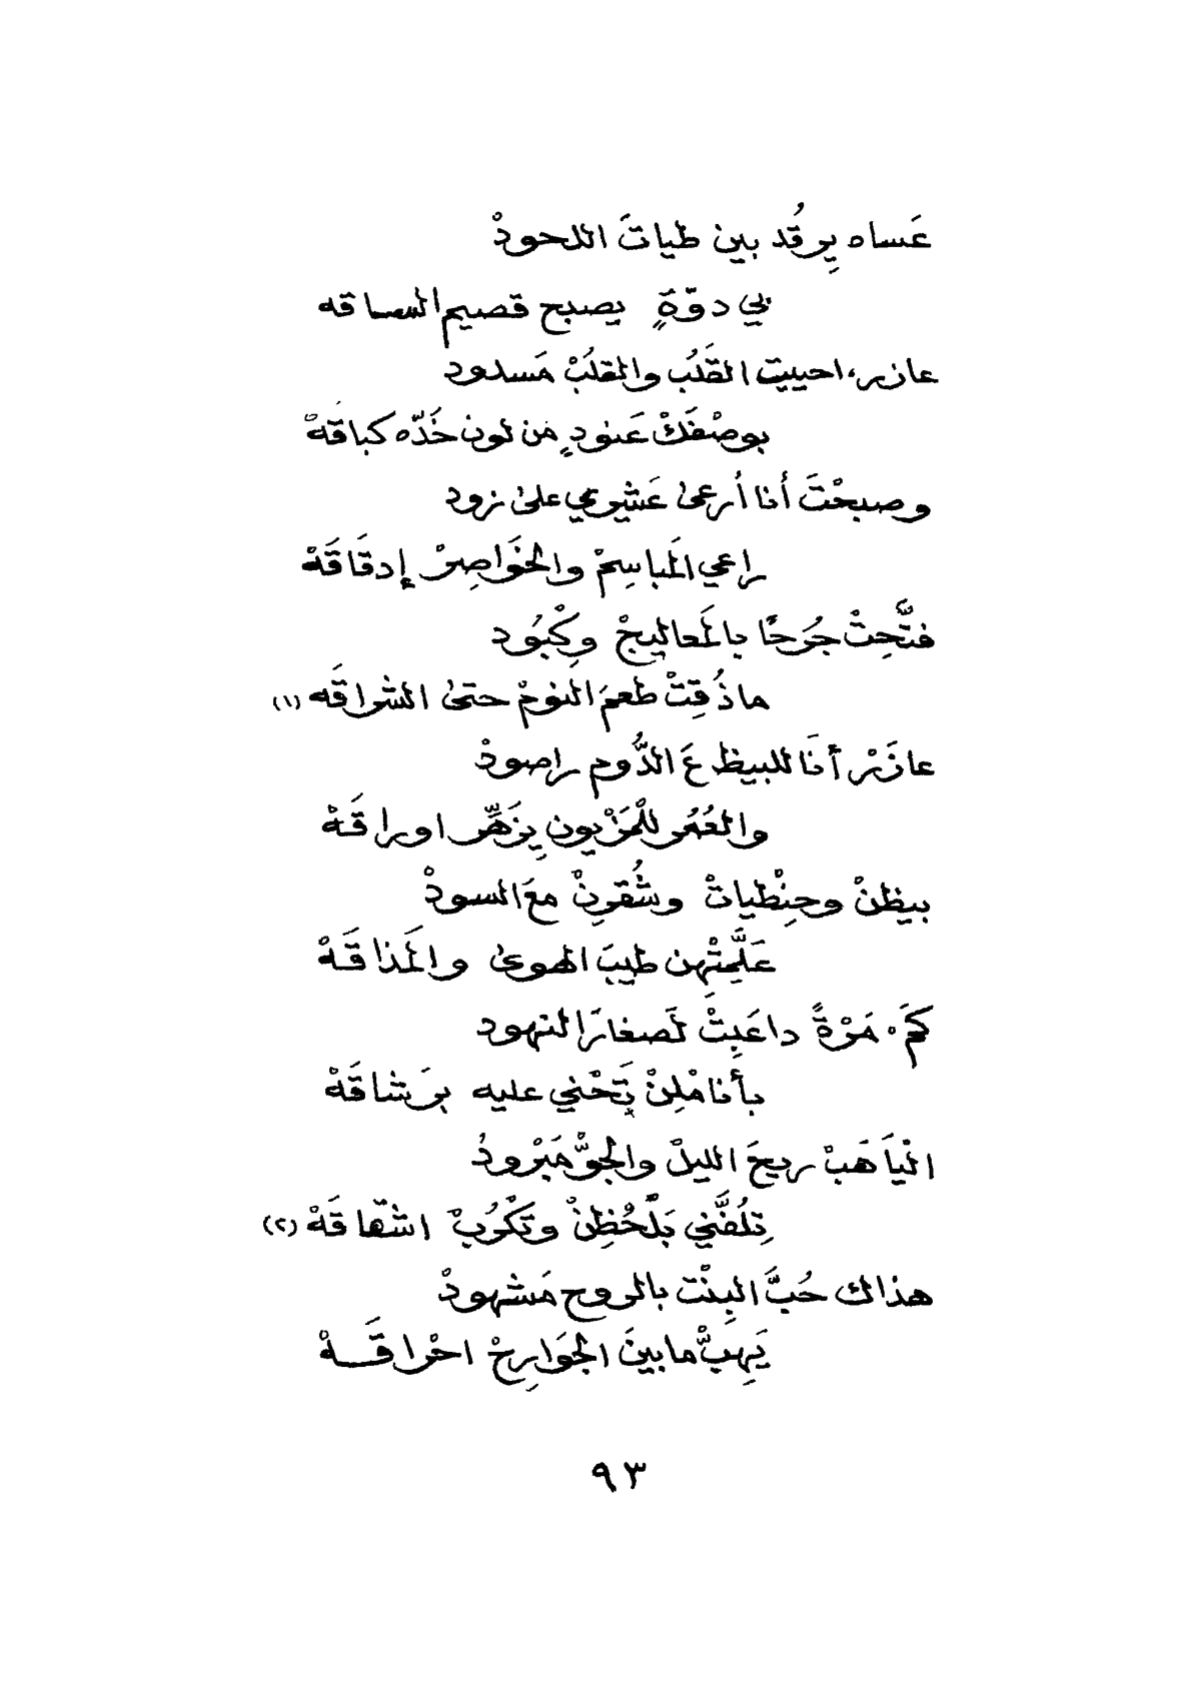 عَساه يِرقُد بين طياتَ اللحودْ
بي دوّةٍ يصبح قصيم الساقه
عازر، احييت القَلُب والقلُبْ مَسدود
بوصْفَكْ عَنودٍ من لون خَدّه كباقَهْ
وصبحْتَ أنا أرعىٰ عَشيري علىٰ زود
راعي المَباسِمْ والخَواصِرْ إدقَاقَهْ
فتَّحِتْ جُرحًا بالمَعاليجْ وِكْبُود
ماذُقِتْ طعمَ النومْ حتىٰ الشراقَه (١)
عازَرْ أنَا للبيظ عَ الدُّوم راصودْ
والعُمُر للْمَزْيون يِزَهِّر اوراقَهْ
بيظنْ وحِنْطياتْ وشُقرِنْ معَ السودْ
عَلَّمِتْهن طيبَ الهوىٰ والمَذاقَهْ
كَمَ مَرْةً داعَبِتْ لَصغارَ النهود
بأنامْلِنْ تَحْني عليه برَشاقَهْ
الْيَا هَبْ ريحَ الليلْ والجوّ مَبْرودْ
تِلُفَّني بَلْحُظِنْ وتَكْرُبْ اشّهاقَهْ (٢)
هذاك حُبَّ البِنْت بالروح مَشهودْ
يَهِبّ مابينَ الجَوَارِحْ احْراقَهْ
٩٣